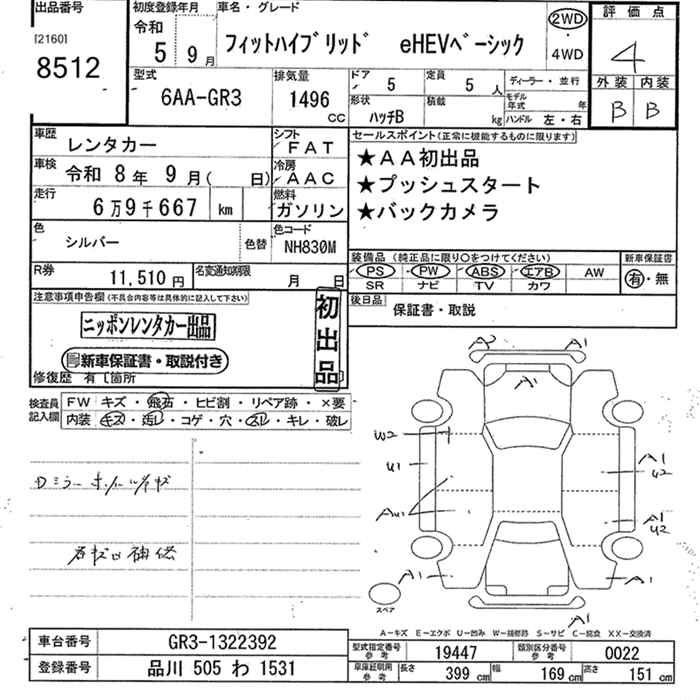 出品番号 初度登録年月 車名・グレード 評価点
[2160] 令和 2WD
8512 5 9月 フィットハイブリッド eHEVベーシック 4WD 4
型式 排気量 ドア 5 定員 5人 ディーラー・並行 外装 内装
6AA-GR3 1496 CC 形状 ハッチB 積載 kg モデル年式 年 ハンドル 左・右 B B
車歴 レンタカー シフト FAT セールスポイント(正常に機能するものに限ります)
車検 令和 8年 9月( 日) 冷房 AAC ★AA初出品
走行 6万9千667 km 燃料 ガソリン ★プッシュスタート
★バックカメラ
色 シルバー 色替 色コード NH830M
装備品(純正品に限り○をつけてください) 新車保証書
PS PW ABS エアB AW 有・無
SR ナビ TV カワ
R券 11,510円 名変通知期限 月 日
後日品 保証書・取説
注意事項申告欄(不具合内容等は具体的に記入して下さい)
ニッポンレンタカー出品 初出品
新車保証書・取説付き
修復歴 有 [箇所
検査員記入欄 FW キズ・飛石・ヒビ割・リペア跡・×要
内装 キズ・汚レ・コゲ・穴・スレ・キレ・破レ
A2 A1
A1
W2
U1
A1
U2
AU1
A1
U2
A1 A1
スペア
A1
A-キズ E-エクボ U-凹み W-補修跡 S-サビ C-腐食 XX-交換済
車台番号 GR3-1322392
型式指定番号 参考 19447 類別区分番号 参考 0022
登録番号 品川 505 わ 1531
車庫証明用 参考 長さ 399 cm 幅 169 cm 高さ 151 cm